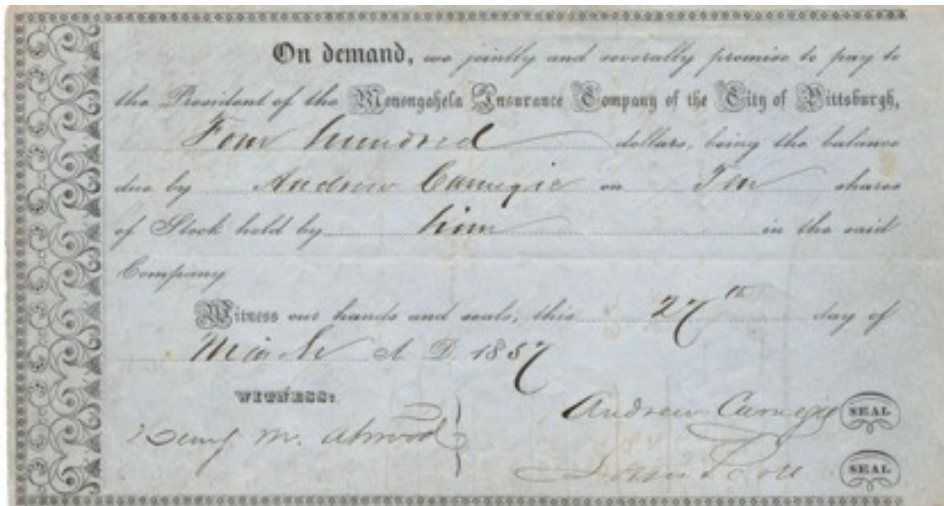 On demand, we jointly and severally promise to pay to
the President of the Monongahela Insurance Company of the City of Pittsburgh,
Four hundred dollars, being the balance
due by Andrew Carnegie on Ten shares
of Stock held by him in the said
Company
Witness our hands and seals, this 27th day of
March A D. 1857
WITNESS:
Andrew Carnegie SEAL
Benj M. Atwood
SEAL